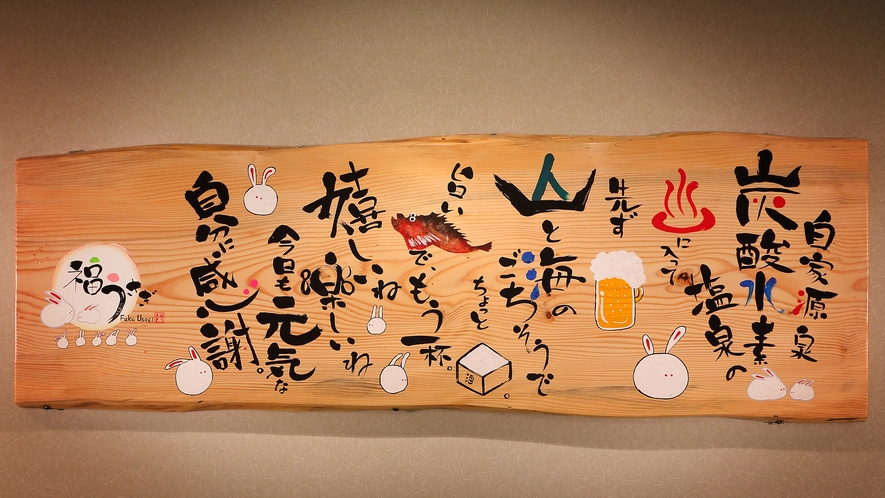 自家源泉
炭酸水素
塩泉の
に入って
先ず
山と海の
ごちそうで
ちょっと
旨い
で、もう一杯。
酒
嬉しいね
楽しいね
今日も元気な
自分に感謝。
福うさぎ
Fuku Usagi